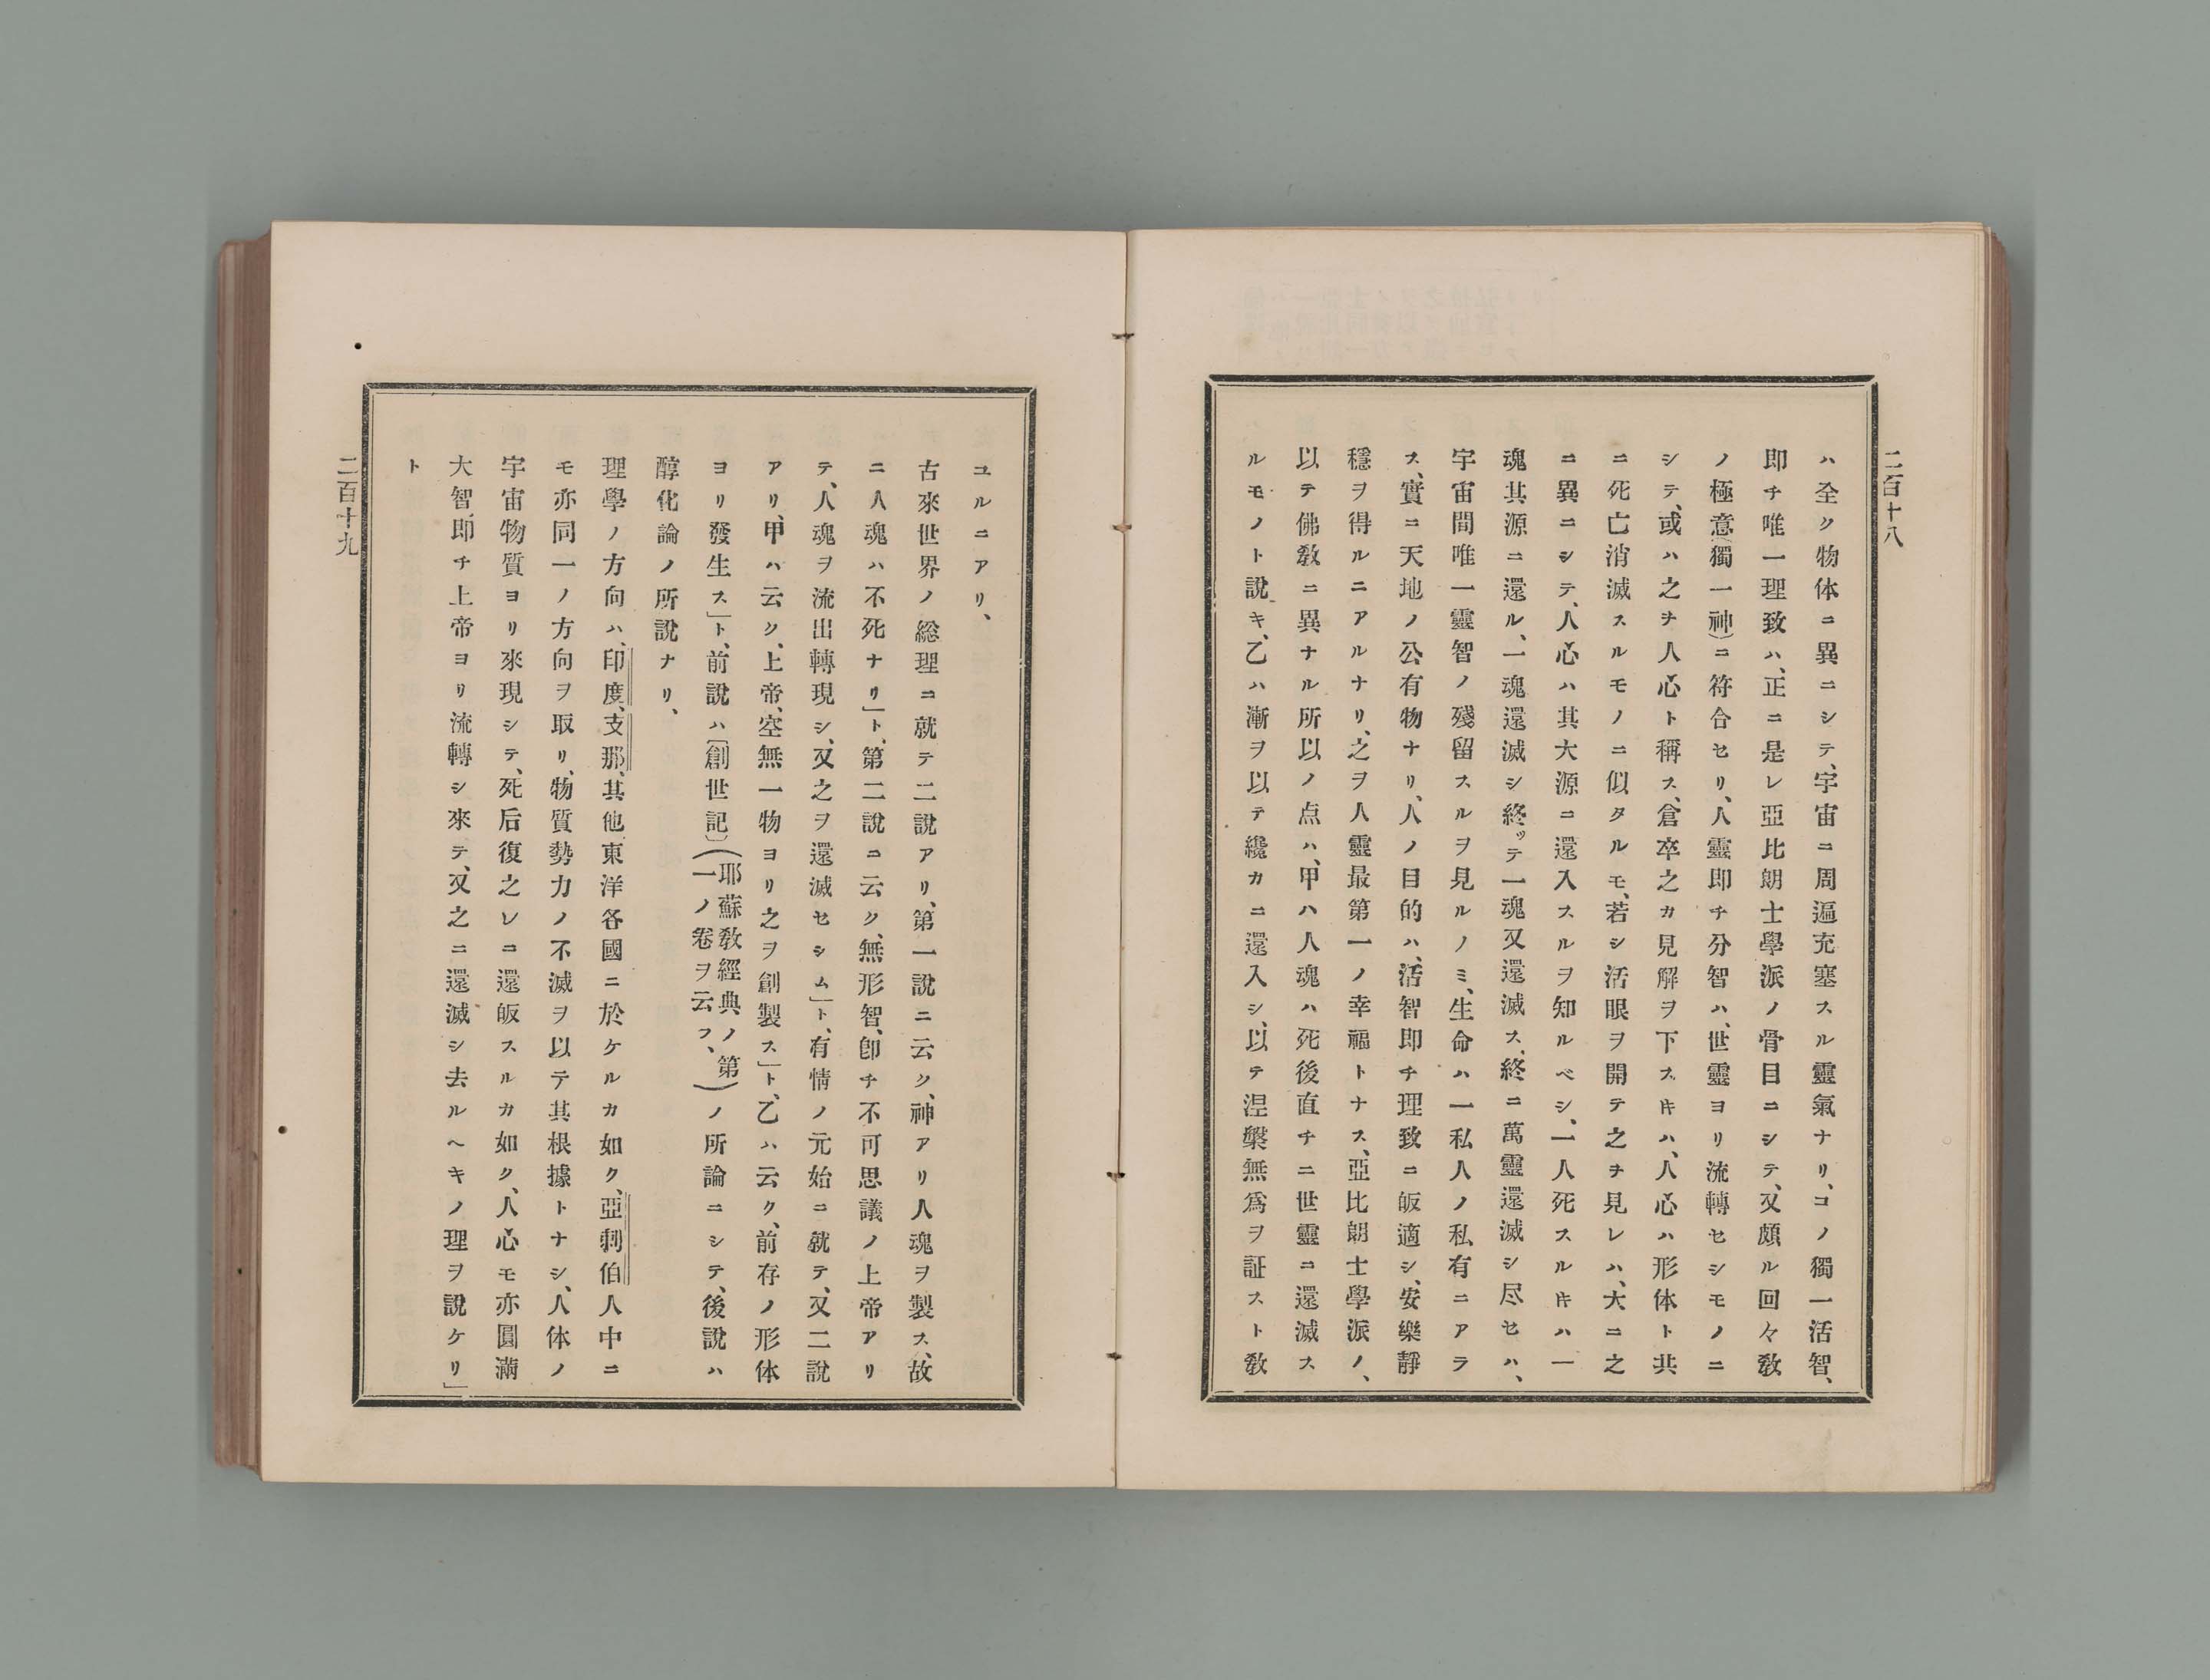 二百十八
ハ全ク物体ニ異ニシテ、宇宙ニ周遍充塞スル靈氣ナリ、コノ獨一活智、
即チ唯一理致ハ、正ニ是レ亞比朗士學派ノ骨目ニシテ、又頗ル回々敎
ノ極意(獨一神)ニ符合セリ、人靈即チ分智ハ、世靈ヨリ流轉セシモノニ
シテ、或ハ之ヲ人心ト稱ス、倉卒之カ見解ヲ下スキハ、人心ハ形体ト共
ニ死亡消滅スルモノニ似タルモ、若シ活眼ヲ開テ之ヲ見レハ、大ニ之
ニ異ニシテ、人心ハ其大源ニ還入スルヲ知ルベシ、一人死スルキハ一
魂其源ニ還ル、一魂還滅シ終ッテ一魂又還滅ス、終ニ萬靈還滅シ尽セハ、
宇宙間唯一靈智ノ殘留スルヲ見ルノミ、生命ハ一私人ノ私有ニアラ
ス、實ニ天地ノ公有物ナリ、人ノ目的ハ、活智即チ理致ニ皈適シ、安樂靜
穩ヲ得ルニアルナリ、之ヲ人靈最第一ノ幸福トナス、亞比朗士學派ノ、
以テ佛敎ニ異ナル所以ノ点ハ、甲ハ人魂ハ死後直チニ世靈ニ還滅ス
ルモノト說キ、乙ハ漸ヲ以テ纔カニ還入シ、以テ涅槃無爲ヲ証スト敎
ユルニアリ、
古來世界ノ総理ニ就テ二說アリ、第一說ニ云ク、神アリ人魂ヲ製ス、故
ニ人魂ハ不死ナリ」ト、第二說ニ云ク、無形智、卽チ不可思議ノ上帝アリ
テ、人魂ヲ流出轉現シ、又之ヲ還滅セシム」ト、有情ノ元始ニ就テ、又二說
アリ、甲ハ云ク、上帝、空無一物ヨリ之ヲ創製ス」ト、乙ハ云ク、前存ノ形体
ヨリ發生ス」ト、前說ハ(創世記)(耶蘇敎經典ノ第一ノ卷ヲ云フ、)ノ所論ニシテ、後說ハ
醇化論ノ所說ナリ、
理學ノ方向ハ、印度、支那、其他東洋各國ニ於ケルカ如ク、亞剌伯人中ニ
モ亦同一ノ方向ヲ取リ、物質勢力ノ不滅ヲ以テ其根據トナシ、人体ノ
宇宙物質ヨリ來現シテ、死后復之レニ還皈スルカ如ク、人心モ亦圓滿
大智、即チ上帝ヨリ流轉シ來テ、又之ニ還滅シ去ルヘキノ理ヲ說ケリ」
ト
二百十九